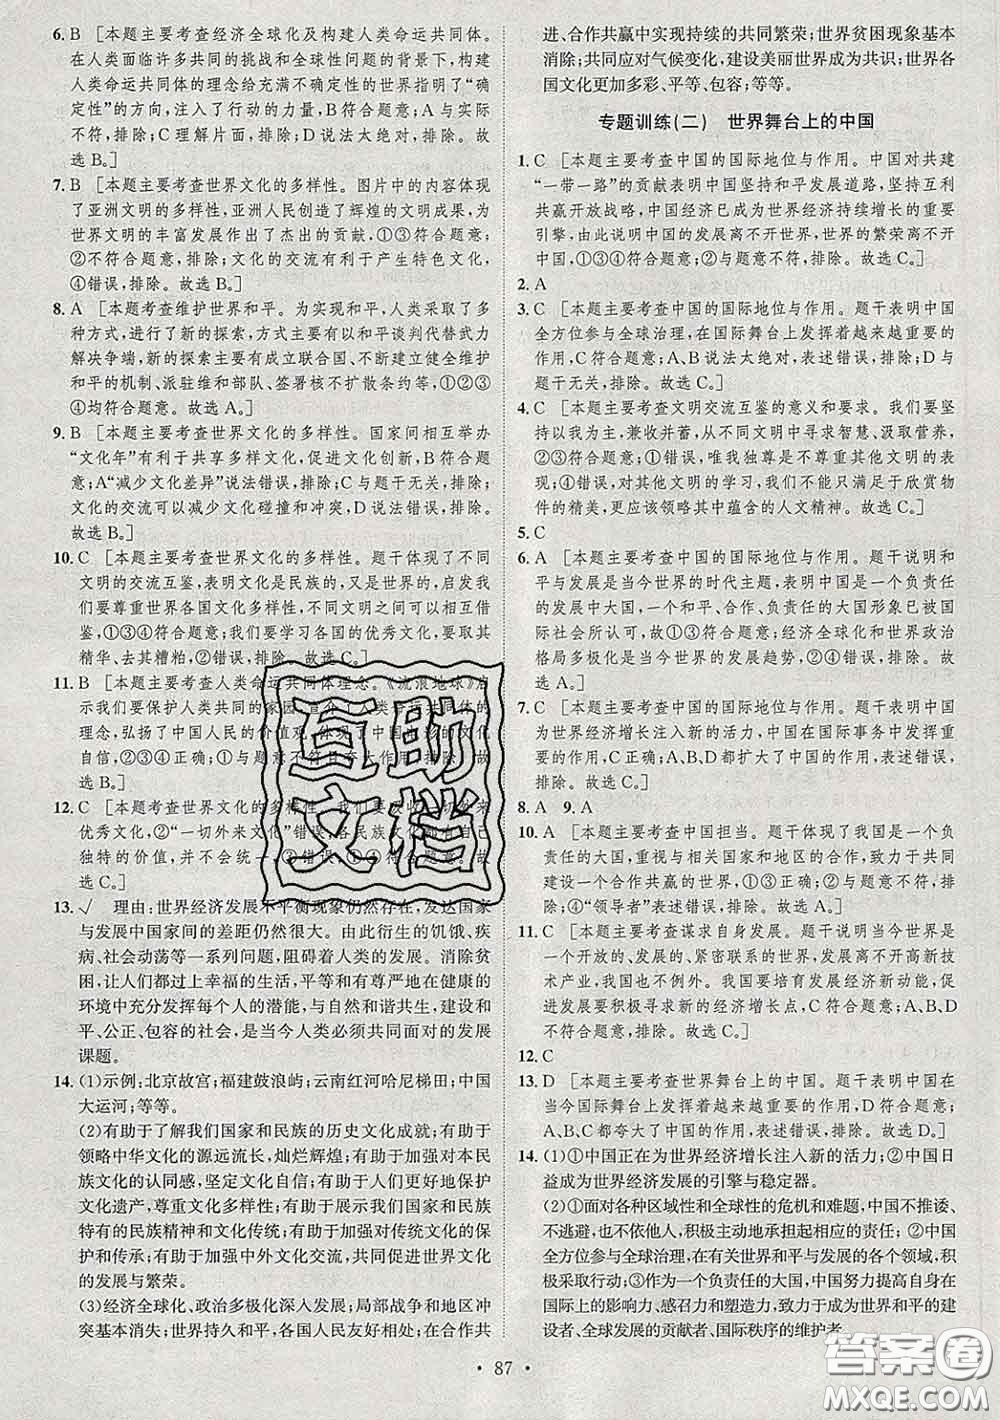 6. B [本题主要考查经济全球化及构建人类命运共同体。
在人类面临许多共同的挑战和全球性问题的背景下,构建
人类命运共同体的理念给充满不确定性的世界指明了
“确定性”的方向,注入了行动的力量,B符合题意;A与实际
不符,排除;C理解片面,排除;D说法太绝对,排除。故
选B。]
7. B [本题主要考查世界文化的多样性。图片中的内容体现
了亚洲文明的多样性,亚洲人民创造了辉煌的文明成果,为
世界文明的丰富发展作出了杰出的贡献,①③符合题意;
②不符合题意,排除;文化的交流有利于产生特色文化,
④错误,排除。故选B。]
8. A [本题考查维护世界和平。为实现和平,人类采取了多
种方式,进行了新的探索,方式主要有以和平谈判代替武力
解决争端,新的探索主要有成立联合国、不断建立健全维护
和平的机制、派驻维和部队、签署核不扩散条约等,①②③
④均符合题意。故选A。]
9. B [本题主要考查世界文化的多样性。国家间互相举办
“文化年”有利于共享多样文化,促进文化创新,B符合题
意;A“减少文化差异”说法错误,排除;C与题干无关,排除;
文化的交流可以减少文化碰撞和冲突,D说法错误,排除。
故选B。]
10. C [本题主要考查世界文化的多样性。题干体现了不同
文明的交流互鉴,表明文化是民族的,又是世界的,启发我
们要尊重世界各国文化多样性,不同文明之间可以相互借
鉴,①③④符合题意;我们要学习各国的优秀文化,要取其
精华、去其糟粕,②错误,排除。故选C。]
11. B [本题主要考查人类命运共同体理念。《流浪地球》启
示我们要保护人类共同的家园,宣介了人类命运共同体的
理念,弘扬了中国人民的价值观,体现了中国人的文化
自信,①②③正确;④与题意不符且夸大作用,排除。故
选B。]
12. C [本题考查世界文化的多样性。我们要吸收一切外来
优秀文化,②“一切外来文化”错误;各民族文化都有自己
独特的价值,并不统一,③错误;①④符合题意。故选
C。]
13. √ 理由:世界经济发展不平衡现象仍然存在,发达国家
与发展中国家间的差距仍然很大。由此衍生的饥饿、疾
病、社会动荡等一系列问题,阻碍着人类的发展。消除贫
困,让人们都过上幸福的生活,都能有尊严地在健康的
环境中充分发挥每个人的潜能,与自然和谐共生,建设和
平、公正、包容的社会,是当今人类必须共同面对的发展
课题。
14. (1)示例:北京故宫;福建鼓浪屿;云南红河哈尼梯田;中国
大运河;等等。
(2)有助于了解我们国家和民族的历史文化成就;有助于
领略中华文化的源远流长,灿烂辉煌;有助于提高对本民
族文化的认同感,坚定文化自信;有助于我们更好地保护
文化遗产,尊重文化多样性;有助于展示我们国家和民族
特有的民族精神和文化传统;有助于加强对传统文化的保
护和传承;有助于加强中外文化交流,共同促进世界文化
的发展与繁荣。
(3)经济全球化、政治多极化深入发展;局部战争和地区冲
突基本消失;世界持久和平,各国人民友好相处;在合作共
进、合作共赢中实现持续的共同繁荣;世界贫困现象基本
消除;共同应对气候变化,建设美丽世界成为共识;世界各
国文化更加多彩、平等、包容;等等。
专题训练(二) 世界舞台上的中国
1. C [本题主要考查中国的国际地位与作用。中国对共建
“一带一路”的贡献表明中国坚持和平发展道路,坚持互利
共赢开放战略,中国经济已成为世界经济持续增长的重要
引擎,由此说明中国的发展离不开世界,世界的繁荣离不开
中国,①③④符合题意;②与题意不符,排除。故选C。]
2. A
3. C [本题主要考查中国的国际地位与作用。题干表明中国
全方位参与全球治理,在国际舞台上发挥着越来越重要的
作用,C符合题意;A、B说法太绝对,表述错误,排除;D与
题干无关,排除。故选C。]
4. C [本题主要考查文明交流互鉴的意义和要求。我们要坚
持以我为主,兼收并蓄,从不同文明中寻求智慧、汲取营养,
②③符合题意;①错误,唯我独尊是不尊重其他文明的表
现;④错误,对其他文明的学习,我们不能只满足于欣赏物
件的精美,更应该领略其中蕴含的人文精神。故选C。]
5. C
6. A [本题主要考查中国的国际地位与作用。题干说明和
平与发展是当今世界的时代主题,表明中国是一个负责任
的发展中大国,一个和平、合作、负责任的大国形象已被国
际社会所认可,故①③符合题意;经济全球化和世界政治
格局多极化是当今世界的发展趋势,②④错误。故选A。]
7. C [本题主要考查中国的国际地位与作用。题干表明中国
为世界经济增长注入新的活力,中国在国际事务中发挥重
要作用,C符合题意;A、B、D都扩大了中国的作用,表述错
误,排除。故选C。]
8. A 9. A
10. A [本题主要考查中国担当。题干体现了我国是一个负
责任的大国,重视与相关国家和地区的合作,致力于共同
建设一个合作共赢的世界,①③正确;②与题意不符,排
除;④“领导者”表述错误,排除。故选A。]
11. C [本题主要考查谋求自身发展。题干说明当今世界是
一个开放的、发展的、紧密联系的世界,发展离不开高新技
术产业,我国也不例外。我国要培育发展经济新动能,促
进发展要积极寻求新的经济增长点,C符合题意;A、B、D
不符合题意,排除。故选C。]
12. C
13. D [本题主要考查世界舞台上的中国。题干表明中国在
当今国际舞台上发挥着越来越重要的作用,D符合题意;
A、B、C都夸大了中国的作用,表述错误,排除。故选D。]
14. (1)①中国正在为世界经济增长注入新的活力;②中国日
益成为世界经济发展的引擎与稳定器。
(2)①面对各种区域性和全球性的危机和难题,中国不推诿、
不逃避,也不依他人,积极主动地承担起相应的责任;②中国
全方位参与全球治理,在有关世界和平与发展的各个领域,积
极采取行动;③作为一个负责任的大国,中国努力提高自身在
国际上的影响力、感召力和塑造力,致力于成为世界和平的建
设者、全球发展的贡献者、国际秩序的维护者。
• 87 •
互助
文档
答案圈
MXQE.COM